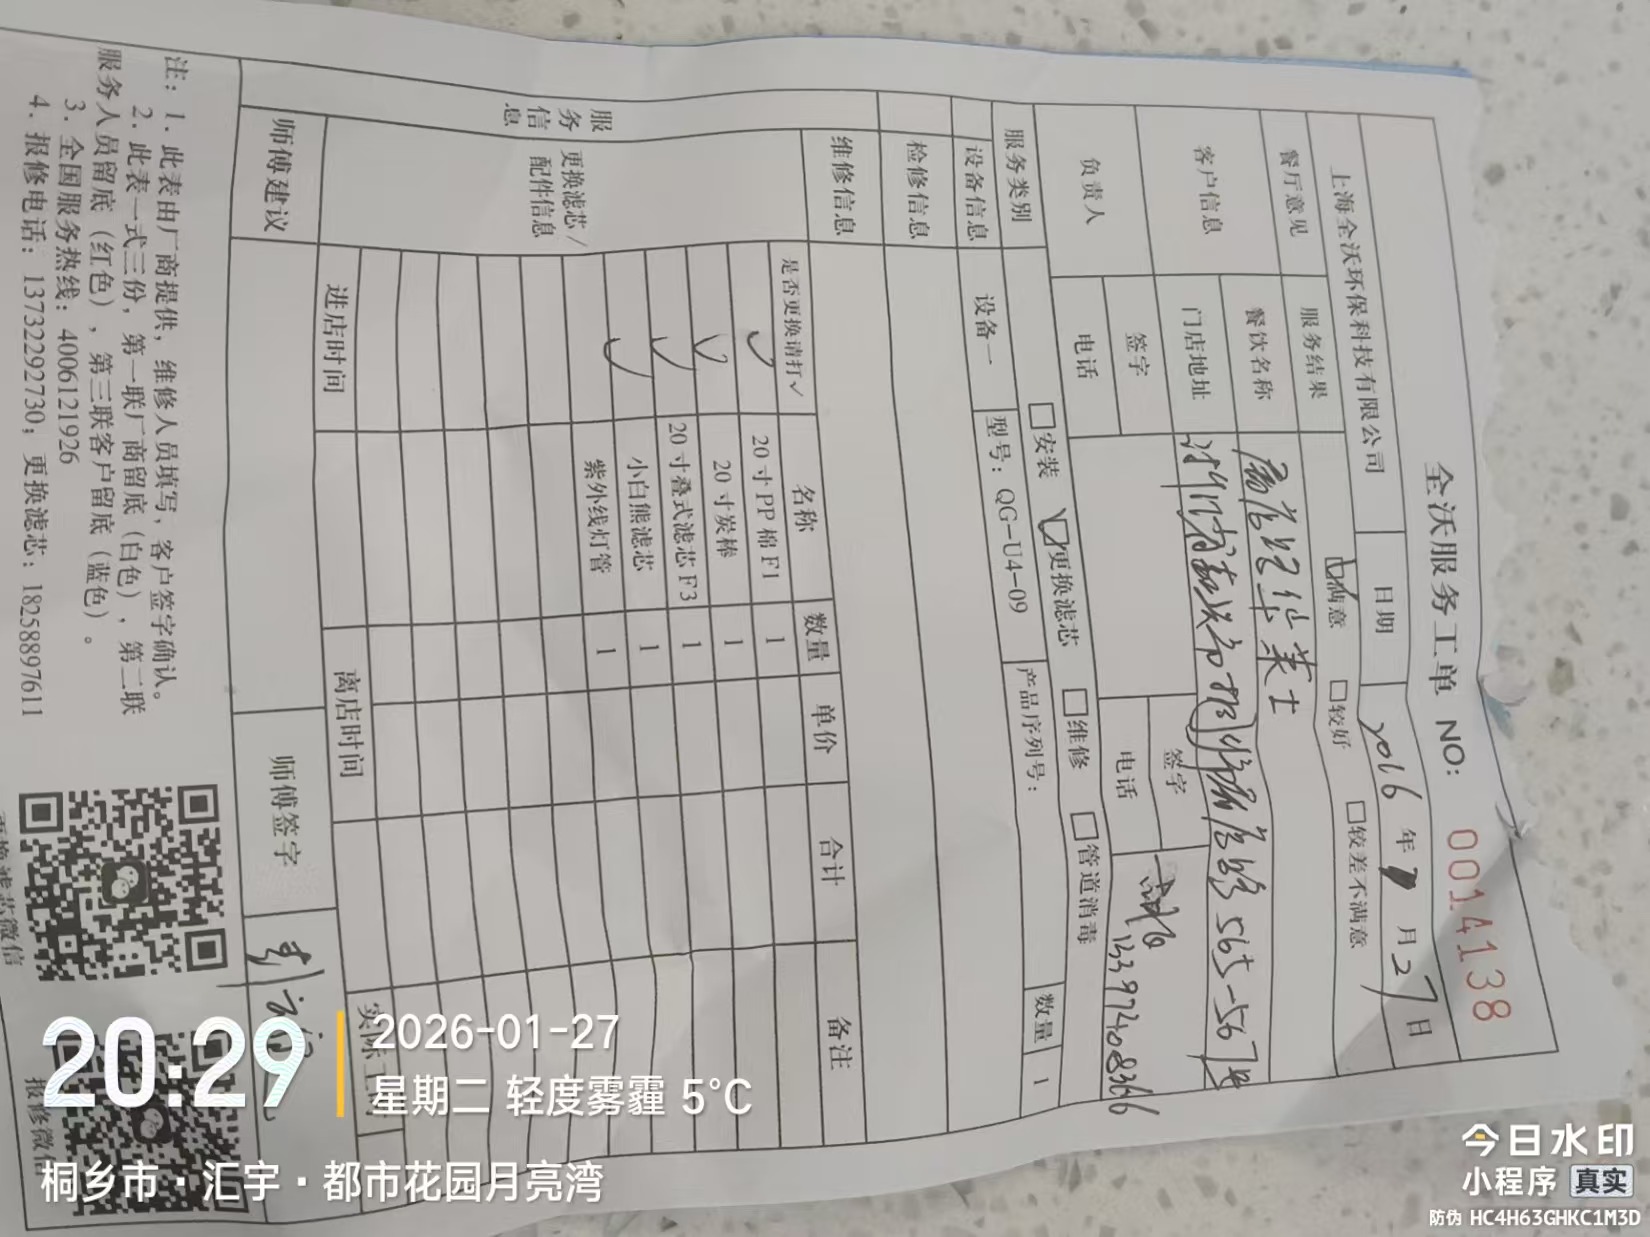 全沃服务工单 NO: 0014138
上海全沃环保科技有限公司 日期 2016 年 月 27 日
餐厅意见 服务结果 满意 □较好 □较差不满意
客户信息 餐饮名称 华莱士
门店地址 565-567号
负责人 签字 签字
电话 电话 13397408366
服务类别 □安装 更换滤芯 □维修 □管道消毒
设备信息 设备一 型号: QG-U4-09 产品序列号: 数量 1
检修信息
维修信息
服务信息
更换滤芯/配件信息
是否更换请打✓ 名称 数量 单价 合计 备注
✓ 20寸PP棉F1 1
✓ 20寸炭棒 1
✓ 20寸叠式滤芯F3 1
✓ 小白熊滤芯 1
紫外线灯管 1
进店时间 离店时间
师傅建议 师傅签字
注: 1. 此表由厂商提供, 维修人员填写, 客户签字确认。
2. 此表一式三份, 第一联厂商留底(白色), 第二联
服务人员留底(红色), 第三联客户留底(蓝色)。
3. 全国服务热线: 4006121926
4. 报修电话: 13732292730; 更换滤芯: 18258897611
更换滤芯微信
报修微信
20:29
2026-01-27
星期二 轻度雾霾 5°C
桐乡市·汇宇·都市花园月亮湾
今日水印
小程序 真实
防伪 HC4H63GHKC1M3D